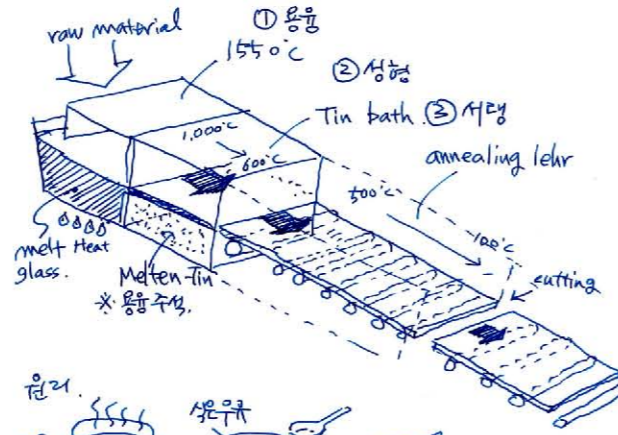 ① 용융
raw material
1550°C
② 성형
Tin bath ③ 서랭
1,000°C
600°C
annealing lehr
500°C
100°C
cutting
melt Heat
glass.
Melten-Tin
※ 용융주석.
원리.
식은우유